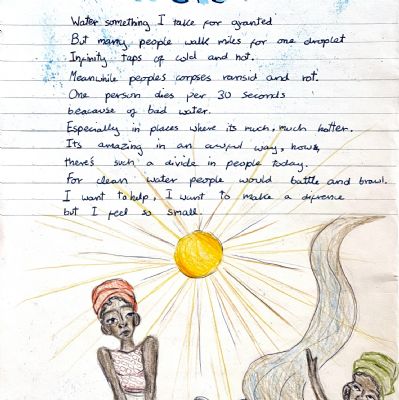 Water something I take for granted
But many people walk miles for one droplet
Infinity taps of cold and hot.
Meanwhile peoples corpses ransid and rot.
One person dies per 30 seconds
beacause of bad water.
Especially in places where its much, much hotter.
It's amazing in an awful way, how
there's such a divide in people today.
For clean water people would battle and brawl.
I want to help, I want to make a difrence
but I feel so small.